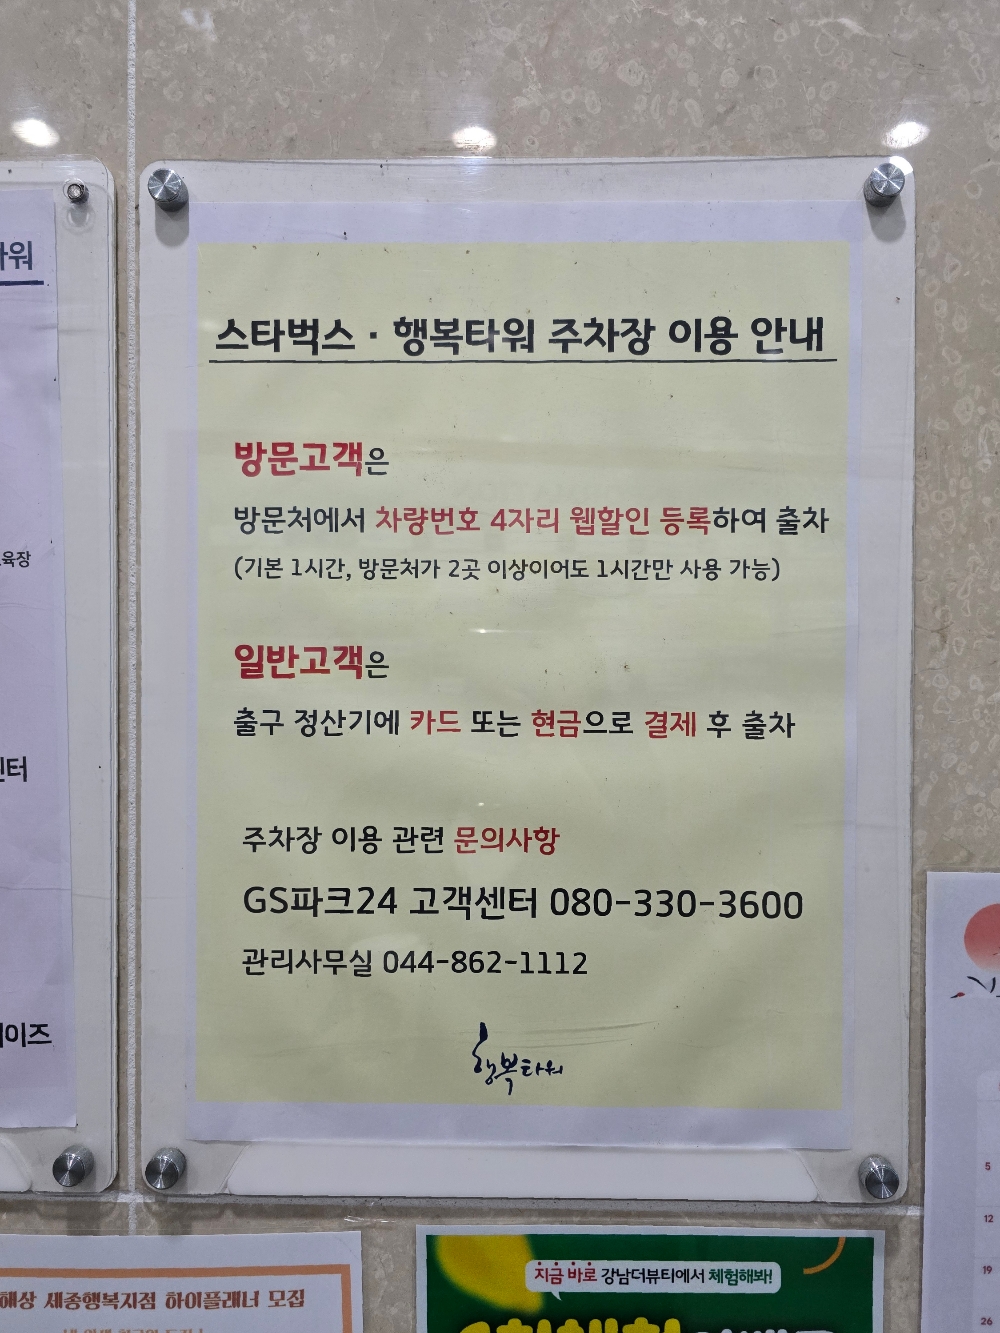 스타벅스 · 행복타워 주차장 이용 안내
방문고객은
방문처에서 차량번호 4자리 웹할인 등록하여 출차
(기본 1시간, 방문처가 2곳 이상이어도 1시간만 사용 가능)
일반고객은
출구 정산기에 카드 또는 현금으로 결제 후 출차
주차장 이용 관련 문의사항
GS파크24 고객센터 080-330-3600
관리사무실 044-862-1112
행복타워
워
육장
터
이즈
해상 세종행복지점 하이플래너 모집
지금 바로 강남더뷰티에서 체험해봐!
5
12
19
26